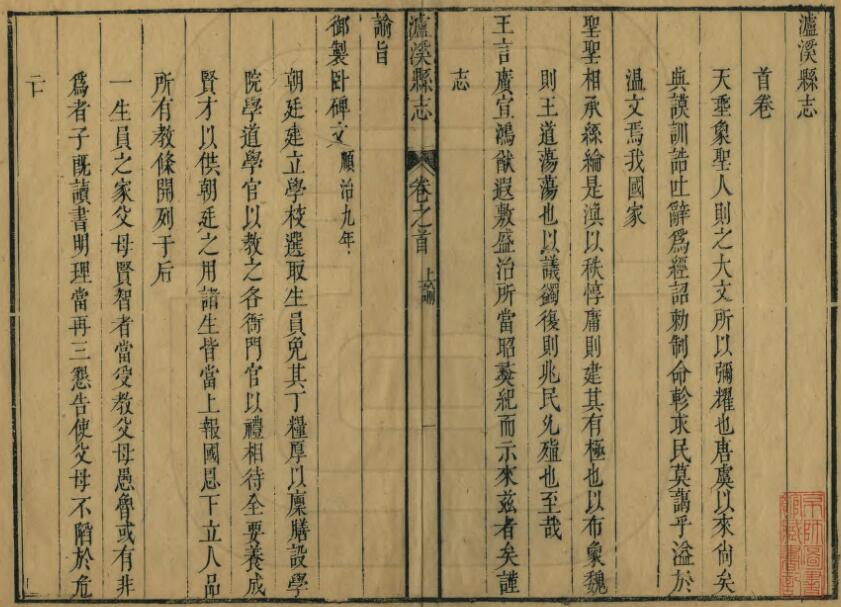 瀘溪縣志
首卷
天垂象聖人則之大文所以彌耀也唐虞以來尙矣
典謨訓誥吐辭爲經詔勅制命軫求民莫藹乎溢於
温文焉我國家
聖聖相承絲綸是滇以秩惇庸則建其有極也以布象魏
則王道蕩蕩也以議蠲復則兆民允殖也至哉
王言廣宣鴻猷遐敷盛治所當昭燊紀而示來兹者矣謹
志
瀘溪縣志
卷之首
上諭
一
諭旨
御製卧碑文順治九年
朝廷建立學校選取生員免其丁糧厚以廩膳設學
院學道學官以教之各衙門官以禮相待全要養成
賢才以供朝廷之用諸生皆當上報國恩下立人品
所有教條開列于后
一生員之家父母賢智者當受教父母愚魯或有非
爲者子既讀書明理當再三懇告使父母不陷於危